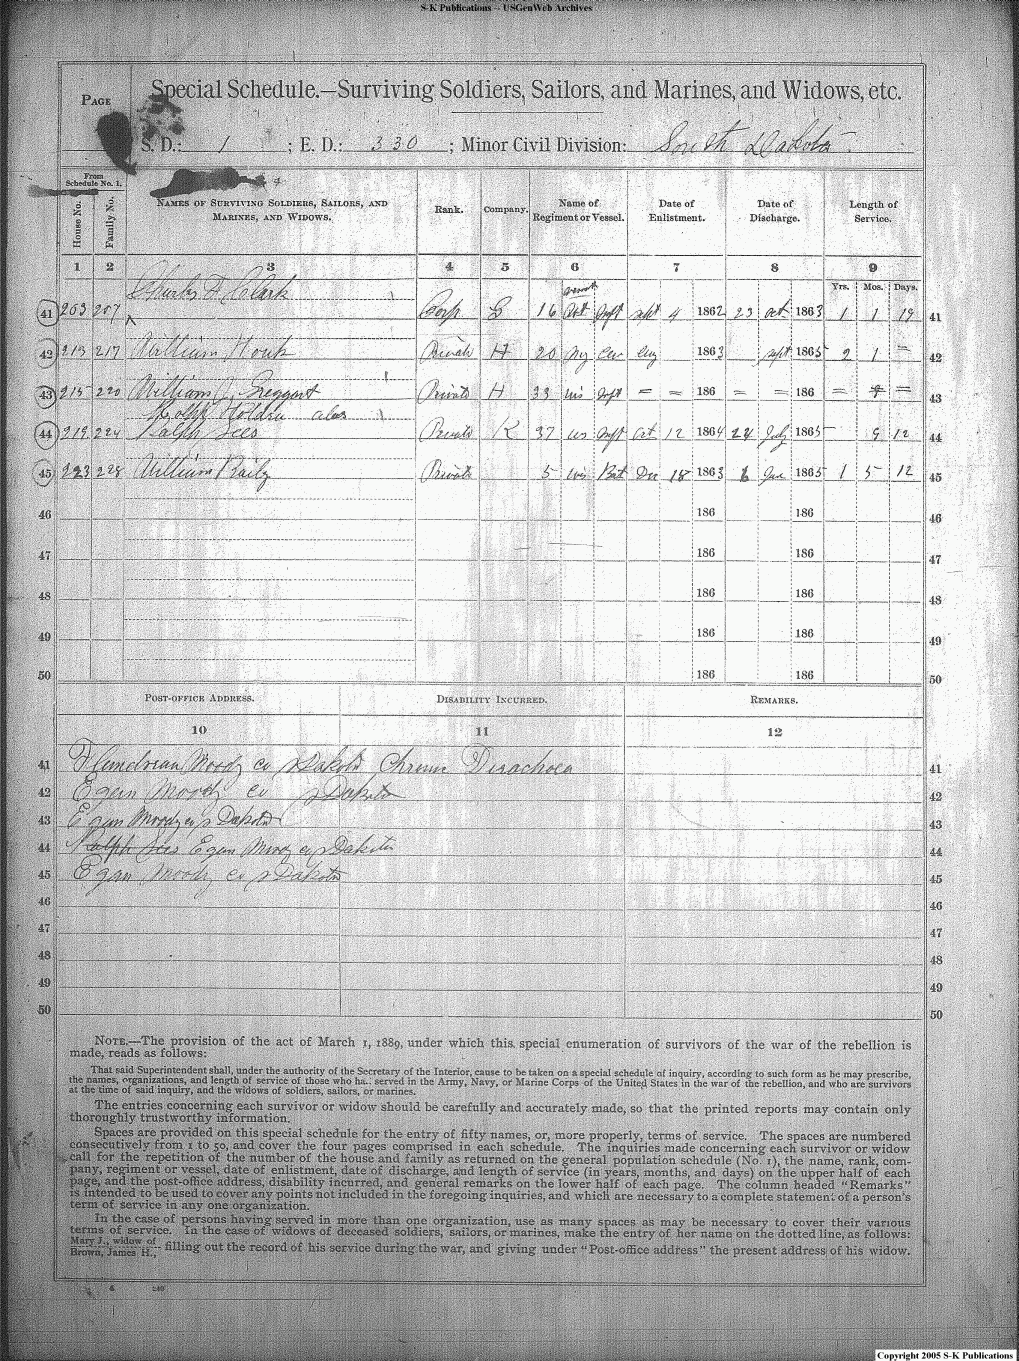 S-K Publications -- USGenWeb Archives
PAGE
Special Schedule.—Surviving Soldiers, Sailors, and Marines, and Widows, etc.
S. D.: 1 ; E. D.: 330 ; Minor Civil Division: South Dakota
From Schedule No. 1.
House No. Family No. NAMES OF SURVIVING SOLDIERS, SAILORS, AND MARINES, AND WIDOWS. Rank. Company. Name of Regiment or Vessel. Date of Enlistment. Date of Discharge. Length of Service.
1 2 3 4 5 6 7 8 9
Yrs. Mos. Days.
Charles F Clark
41 203 207 Corp 16 Sept 4 1862 23 Oct 1863 1 1 19 41
42 213 217 William Private H 20 Ny Cav Aug 1863 Sept 1865 2 1 — 42
43 215 220 William J. Greggart Private H 33 Wis Inft = = 186 = = 186 = = 43
Ralph Holdru alas
44 219 224 Ralph Sees Private K 37 Wis Inft Oct 12 1864 24 July 1865 9 12 44
45 223 228 William Raily Private 5 Wis Bat Dec 18 1863 6 Jun 1865 1 5 12 45
46 186 186 46
47 186 186 47
48 186 186 48
49 186 186 49
50 186 186 50
POST-OFFICE ADDRESS. DISABILITY INCURRED. REMARKS.
10 11 12
41 Flandreau Moody co S Dakota Chronic 41
42 Egan Moody Co S Dakota 42
43 Egan Moody co S Dakota 43
44 Ralph Sees Egan Moody co S Dakota 44
45 Egan Moody co S Dakota 45
46 46
47 47
48 48
49 49
50 50
NOTE.—The provision of the act of March 1, 1889, under which this special enumeration of survivors of the war of the rebellion is
made, reads as follows:
That said Superintendent shall, under the authority of the Secretary of the Interior, cause to be taken on a special schedule of inquiry, according to such form as he may prescribe,
the names, organizations, and length of service of those who ha.. served in the Army, Navy, or Marine Corps of the United States in the war of the rebellion, and who are survivors
at the time of said inquiry, and the widows of soldiers, sailors, or marines.
The entries concerning each survivor or widow should be carefully and accurately made, so that the printed reports may contain only
thoroughly trustworthy information.
Spaces are provided on this special schedule for the entry of fifty names, or, more properly, terms of service. The spaces are numbered
consecutively from 1 to 50, and cover the four pages comprised in each schedule. The inquiries made concerning each survivor or widow
call for the repetition of the number of the house and family as returned on the general population schedule (No. 1), the name, rank, com-
pany, regiment or vessel, date of enlistment, date of discharge, and length of service (in years, months, and days) on the upper half of each
page, and the post-office address, disability incurred, and general remarks on the lower half of each page. The column headed "Remarks"
is intended to be used to cover any points not included in the foregoing inquiries, and which are necessary to a complete statement of a person's
term of service in any one organization.
In the case of persons having served in more than one organization, use as many spaces as may be necessary to cover their various
terms of service. In the case of widows of deceased soldiers, sailors, or marines, make the entry of her name on the dotted line, as follows:
Mary J., widow of
Brown, James H., filling out the record of his service during the war, and giving under "Post-office address" the present address of his widow.
Copyright 2005 S-K Publications